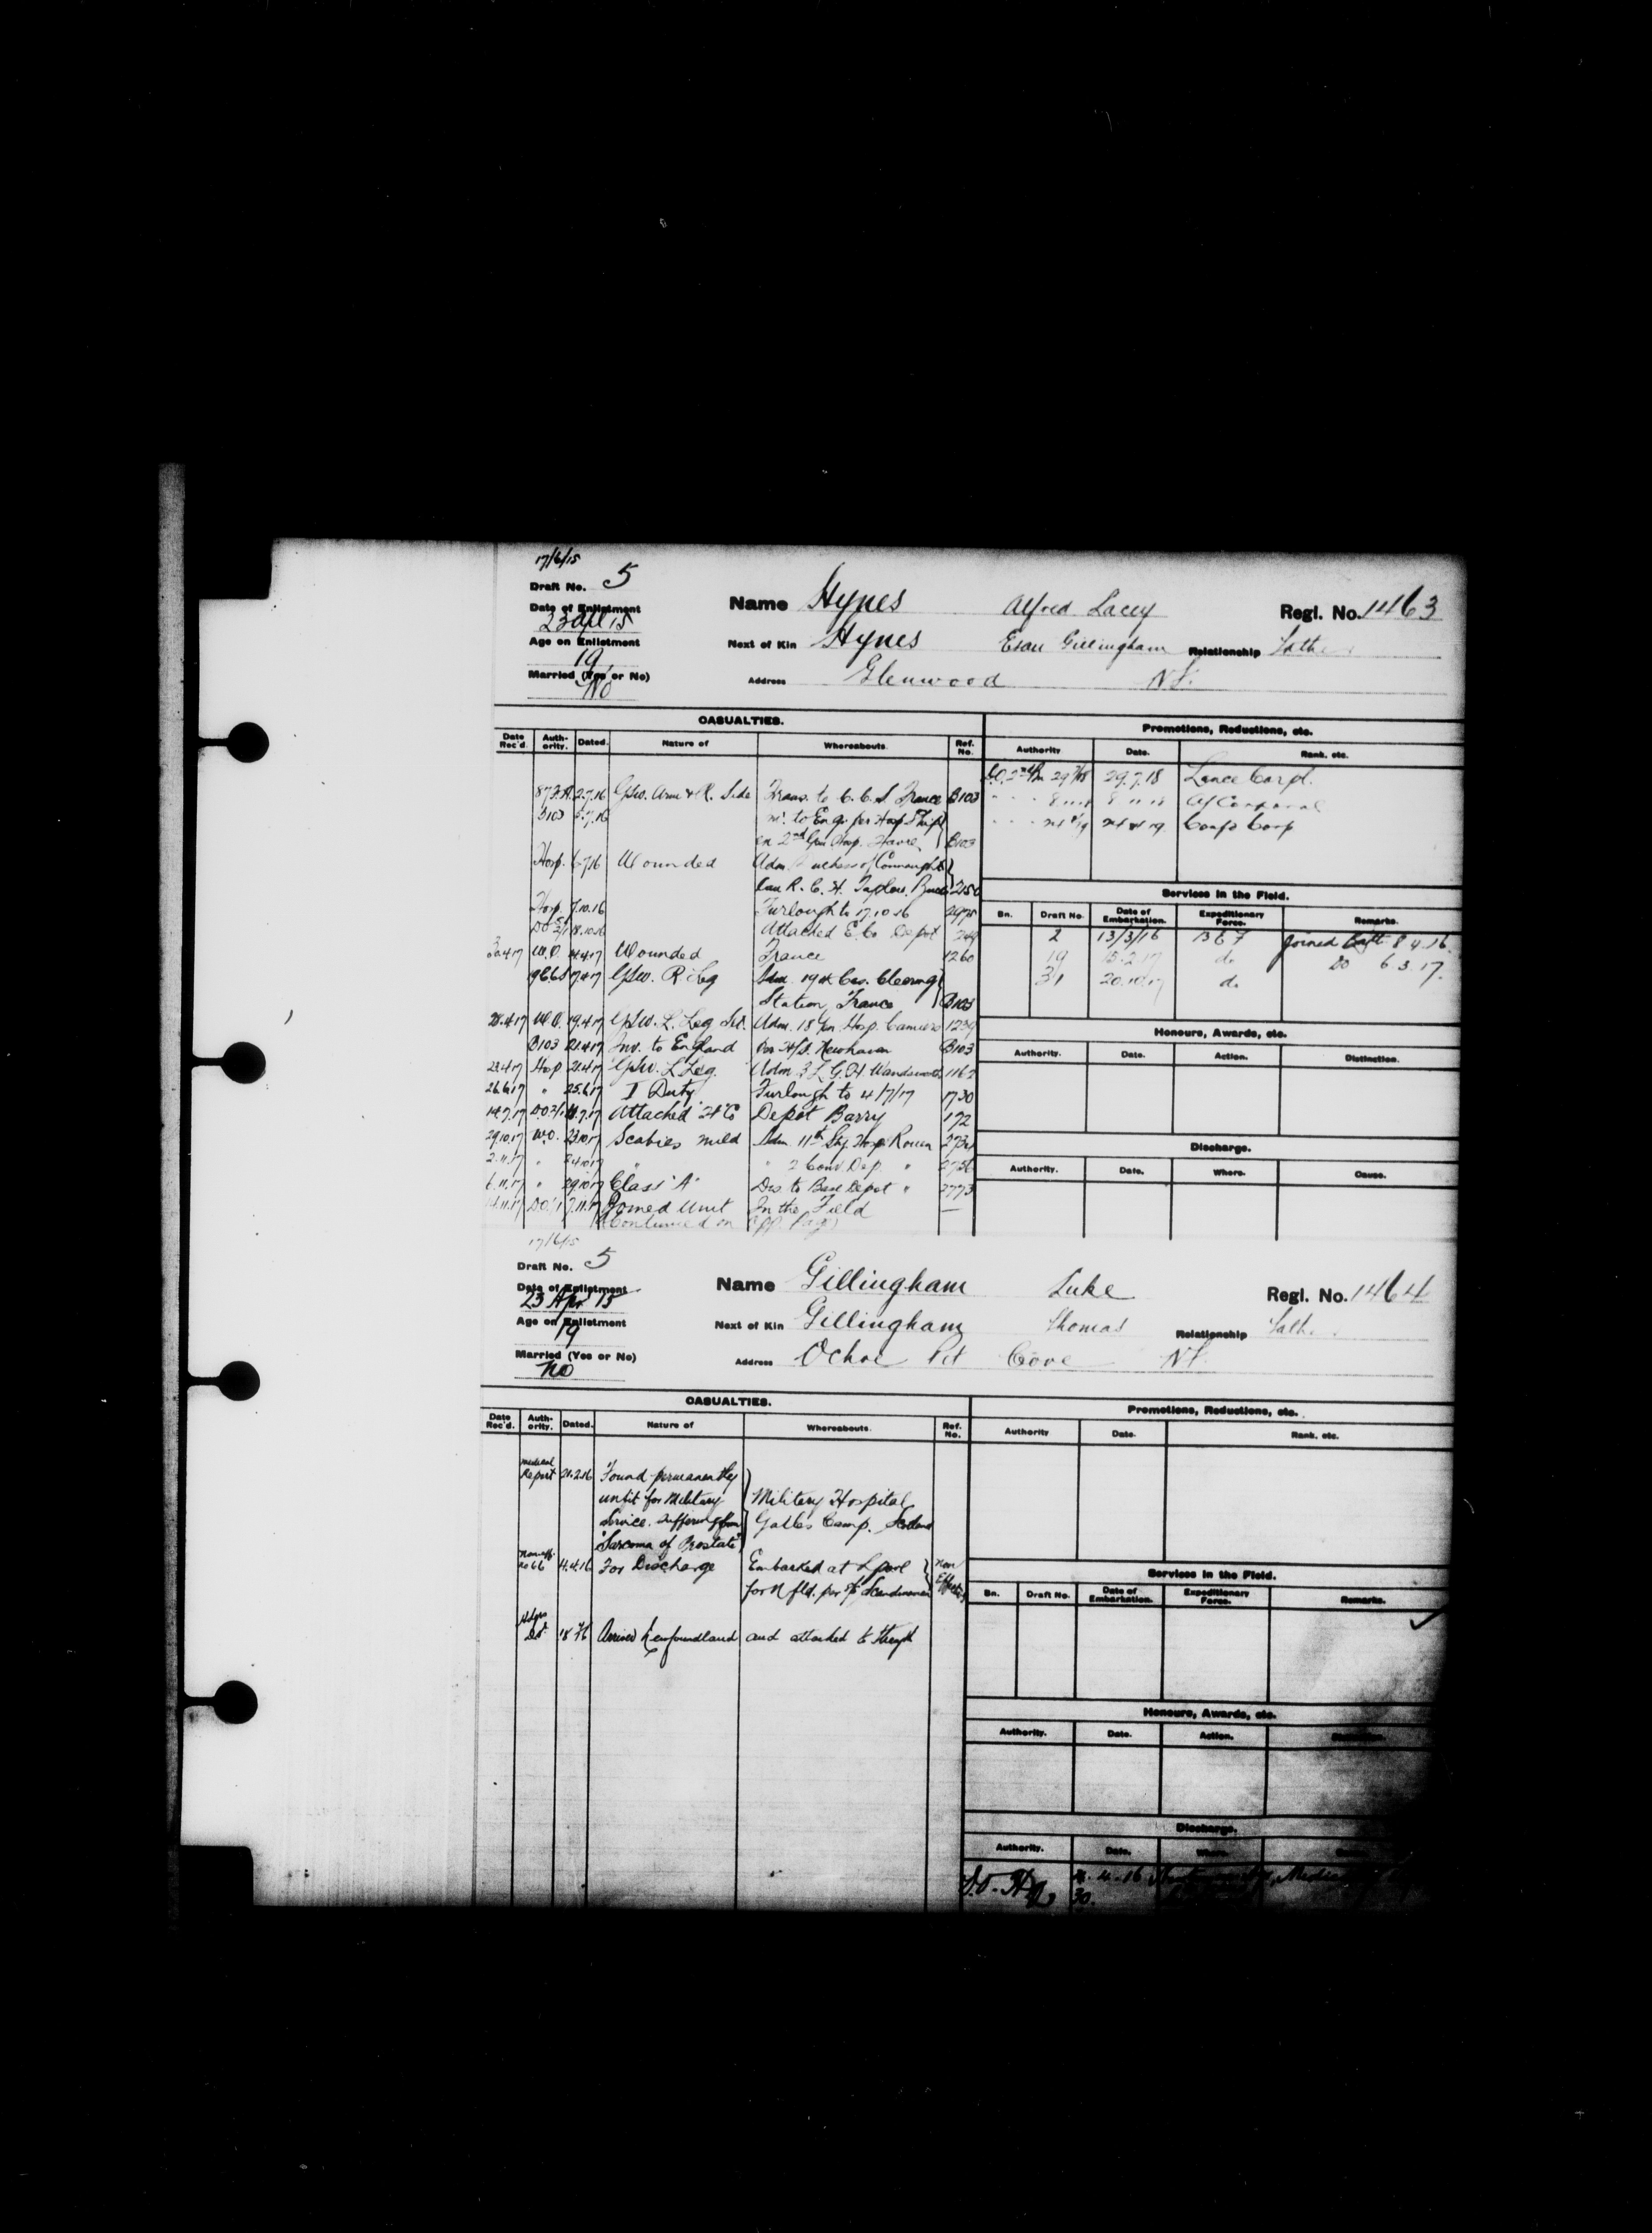 17/6/15
Draft No. 5
Name Hynes Alfred Lacey Regl. No. 1463
Date of Enlistment
23 Apl 15
Next of Kin Hynes Esau Gillingham Relationship Father
Age on Enlistment
19
Address Glenwood Nf.
Married (Yes or No)
No
CASUALTIES.
Date Rec'd. Authority. Dated. Nature of Whereabouts. Ref. No.
87 F.A. 2.7.16 GSW. Arm & R. Side Trans. to C.C.S France B103
B103 5.7.16 to Eng. per Hosp Ship
ex 2nd Gen Hosp. Havre B103
Hosp. 6.7.16 Wounded Adm. Duchess of Connaught
Can R.C.H. Taplow. Bucks 2150
Hosp. 7.10.16 Furlough to 17.10.16 2975
18.10.16 Attached E. Co Depot 249
W.O. 4.17 Wounded France 1260
17.4.17 GSW. R. Leg Adm. 19th Cas. Clearing
Station, France B103
W.O. 19.4.17 GSW. L. Leg Adm. 18 Gen. Hosp. Camiers 1239
B103 21.4.17 Inv. to England per H/S. Newhaven B103
23.4.17 Hosp 21.4.17 GSW. L Leg. Adm 3 L.G.H. Wandsworth 1162
26.6.17 " 25.6.17 I Duty Furlough to 4/7/17 1730
14.7.17 Attached "H" Co Depot Barry 172
29.10.17 W.O. 23.10.17 Scabies mild Adm. 11th Sty. Hosp Rouen
2.11.17 " 24.10.17 " " 2 Conv. Dep. "
6.11.17 " 29.10.17 Class "A" Dis to Base Depot " 2773
7.11.17 Joined Unit In the Field —
(Continued on opp. Page)
Promotions, Reductions, etc.
Authority Date. Rank, etc.
29.7.18 Lance Corpl.
A/Corporal
Corp
Services in the Field.
Bn. Draft No. Date of Embarkation. Expeditionary Force. Remarks.
2 13/3/16 BEF Joined Batt. 8.4.16
19 15.2.17 do Do 6.3.17.
31 20.10.17 do
Honours, Awards, etc.
Authority. Date. Action. Distinction.
Discharge.
Authority. Date. Where. Cause.
17/6/15
Draft No. 5
Name Gillingham Luke Regl. No. 1464
Date of Enlistment
23 Apr 15
Next of Kin Gillingham Thomas Relationship Father
Age on Enlistment
19
Address Ochre Pit Cove Nf.
Married (Yes or No)
No
CASUALTIES.
Date Rec'd. Authority. Dated. Nature of Whereabouts. Ref. No.
Medical
Report 21.2.16 Found permanently
unfit for Military Military Hospital
Service. Suffering from Gailes Camp. Scotland
"Sarcoma of Prostate"
4.4.16 For Discharge Embarked at Lpool Non
for Nfld. per Scandinavian
Arrived Newfoundland and attached to strength
Promotions, Reductions, etc.
Authority Date. Rank, etc.
Services in the Field.
Bn. Draft No. Date of Embarkation. Expeditionary Force. Remarks.
Honours, Awards, etc.
Authority. Date. Action.
Discharge.
Authority. Date. Where.
30.